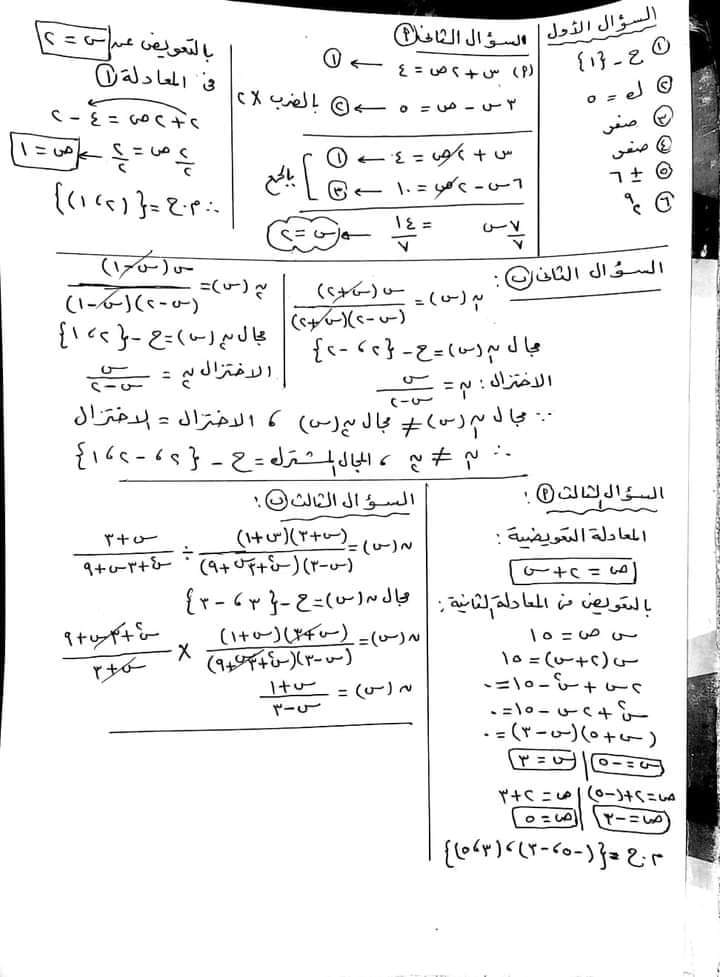 السؤال الأول
① ح - {١}
② ك = ٥
③ صفر
④ صفر
⑤ ± ٦
⑥ ٩/٢
السؤال الثانى Ⓟ
(P) س + ٢ص = ٤ ← ①
٣س - ص = ٥ ← ② بالضرب × ٢
س + ٢ص = ٤ ← ①
٦س - ٢ص = ١٠ ← ③
بالجمع
٧س/٧ = ١٤/٧ ← س = ٢
بالتعويض عن س = ٢
فى المعادلة ①
٢ + ٢ص = ٤ - ٢
٢ص/٢ = ٢/٢ ← ص = ١
∴ م.ح = {(٢،١)}
السؤال الثانى ب :
ن₁(س) = س(س+٢) / (س-٢)(س+٢)
مجال ن₁(س) = ح - {٢، -٢}
الاختزال : ن₁ = س / س-٢
ن₂(س) = س(س-١) / (س-٢)(س-١)
مجال ن₂(س) = ح - {٢، ١}
الاختزال ن₂ = س / س-٢
∵ مجال ن₁(س) ≠ مجال ن₂(س) ، الاختزال = الاختزال
∴ ن₁ ≠ ن₂ ، المجال المشترك = ح - {٢، -٢، ١}
السؤال الثالث Ⓟ :
المعادلة التعويضية :
ص = ٢ + س
بالتعويض فى المعادلة الثانية :
س ص = ١٥
س(٢+س) = ١٥
٢س + س² - ١٥ = ٠
س² + ٢س - ١٥ = ٠
(س+٥)(س-٣) = ٠
س = -٥ | س = ٣
ص = ٢+(-٥) | ص = ٢+٣
ص = -٣ | ص = ٥
م.ح = {(-٥، -٣)، (٣،٥)}
السؤال الثالث ب :
ن(س) = (س+٣)(س+١) / (س-٣)(س²+٣س+٩) ÷ س+٣ / س²+٣س+٩
مجال ن(س) = ح - {٣، -٣}
ن(س) = (س+٣)(س+١) / (س-٣)(س²+٣س+٩) × س²+٣س+٩ / س+٣
ن(س) = س+١ / س-٣